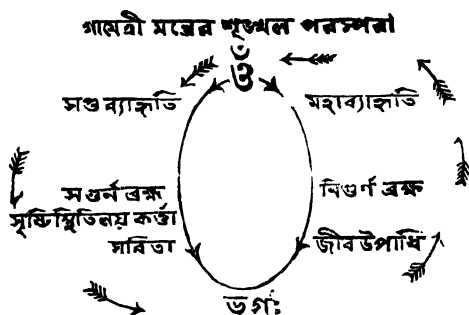 গায়ত্রী মন্ত্রের শৃঙ্খল পরস্পরা
ওঁ
সপ্তব্যাহৃতি
মহাব্যাহৃতি
সগুর্ন ব্রহ্ম
সৃষ্টিস্থিতিলয় কর্ত্তা
সবিতা
নিগুর্ণ ব্রহ্ম
জীবউপাধি
ভর্গঃ